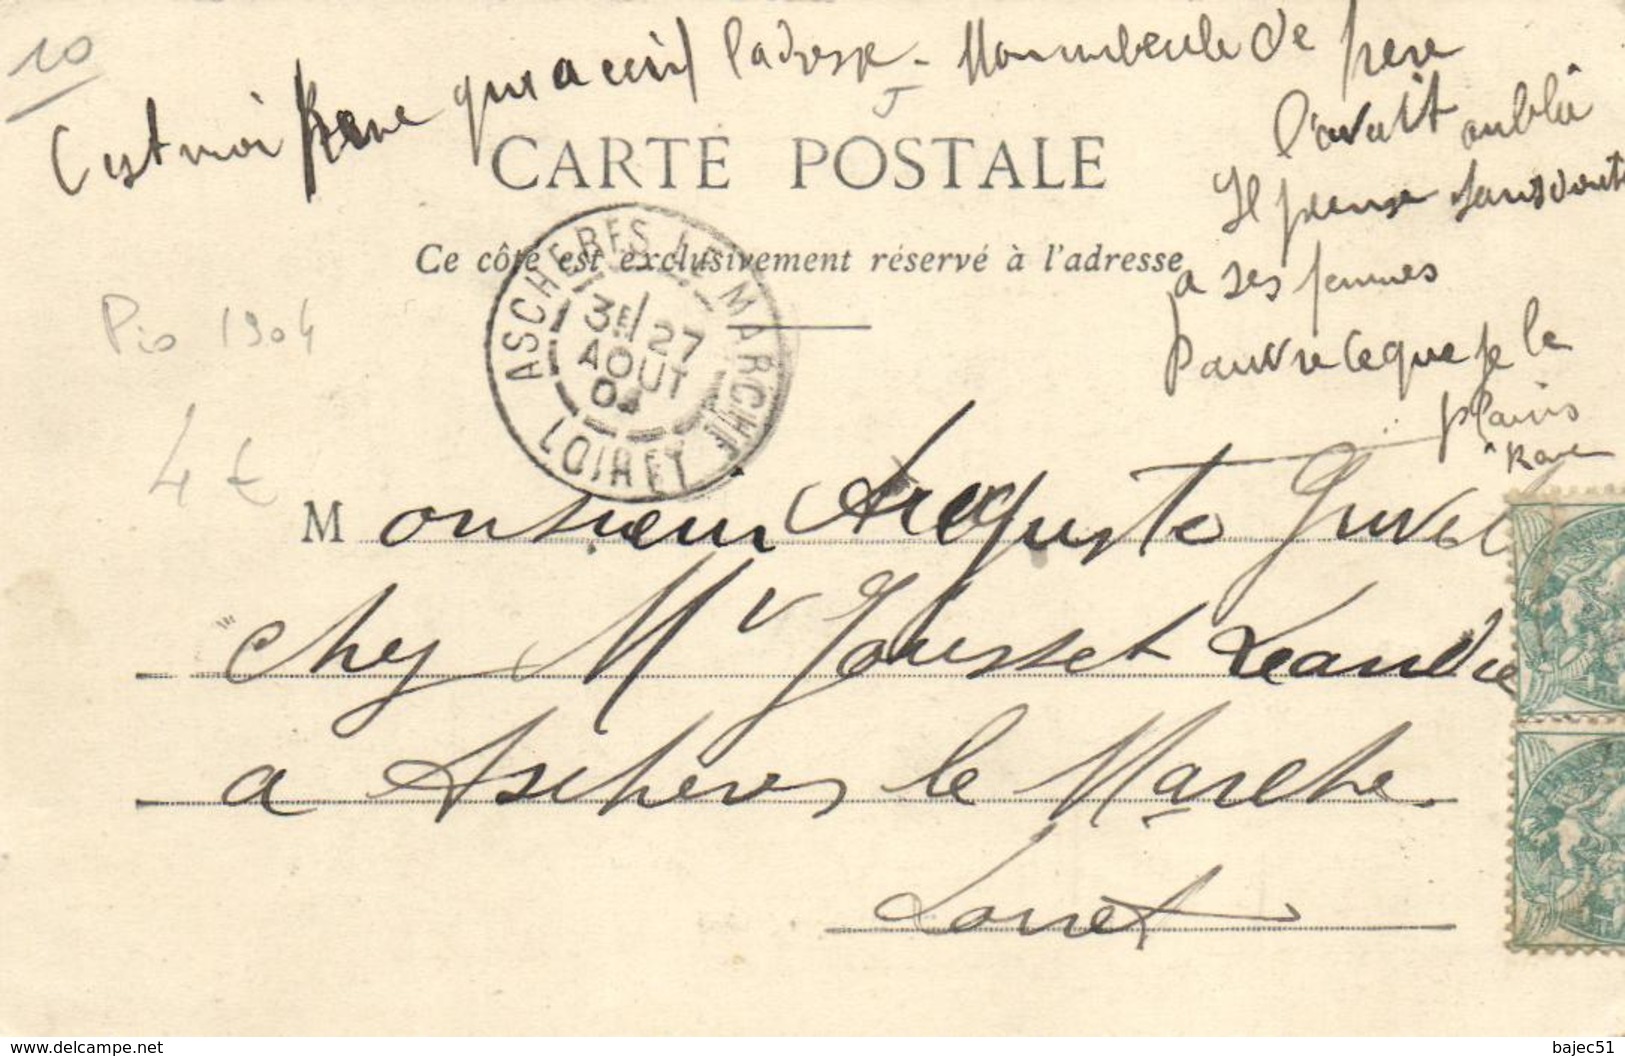 10
C'est moi Rene qui a ecrit l'adresse - Mon mbecile de pere
l'avait oublié
Il pense sans doute
a ses femmes
Pauvre ce que je le
plains
Rene
CARTE POSTALE
Ce côté est exclusivement réservé à l'adresse
ASCHERES LE MARCHE
3E/27
AOUT
04
LOIRET
Pio 1904
4€
Monsieur Auguste
chez Mr Jousset Leandre
a Ascheres le Marche
Loiret
www.delcampe.net
bajec51